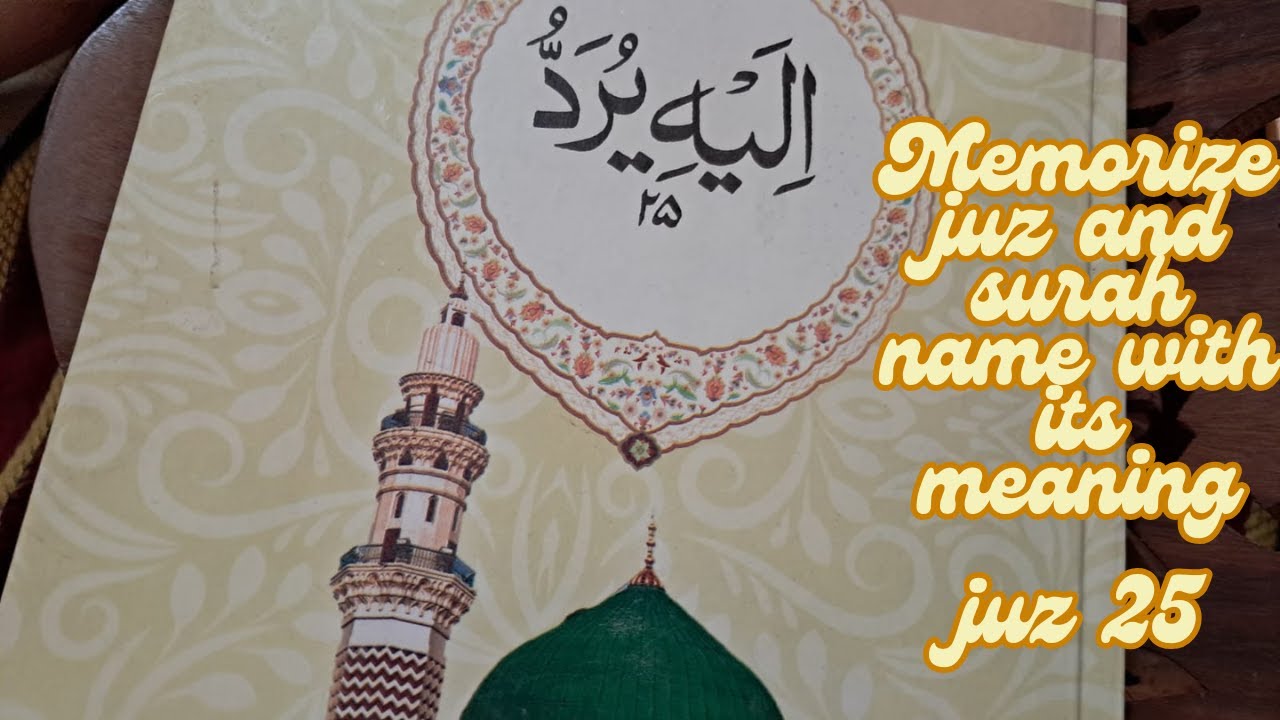 اِلَيْهِ يُرَدُّ
۲۵
Memorize
juz and
surah
name with
its
meaning
juz 25